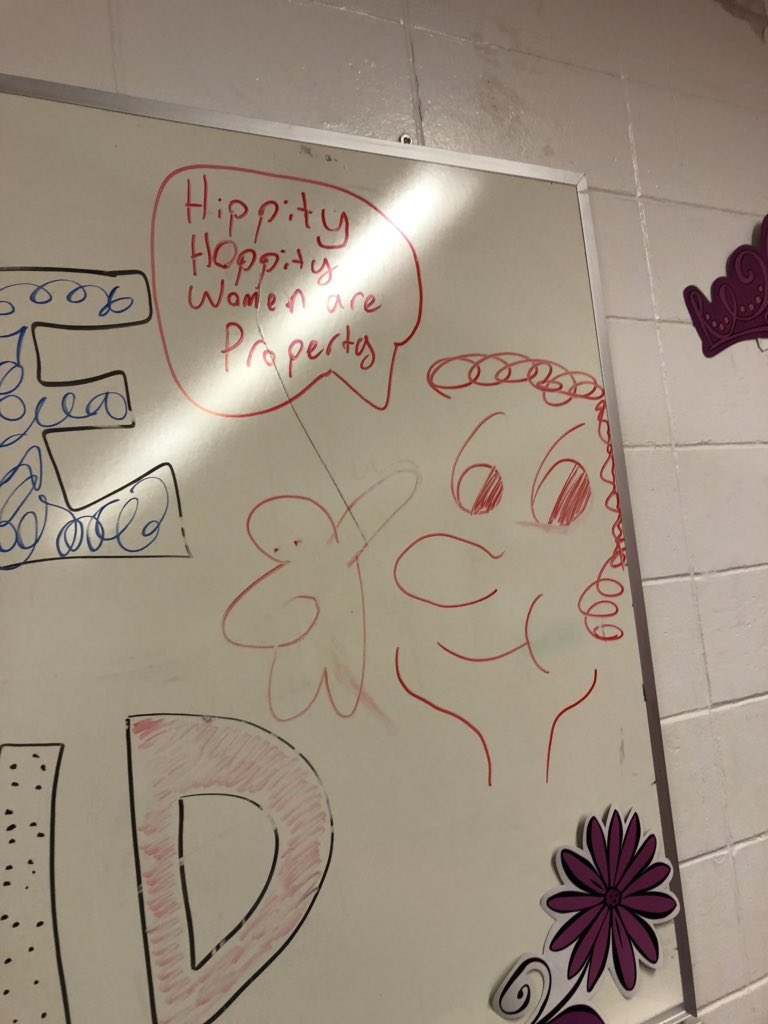 Hippity
Hoppity
Women are
Property
E
ID